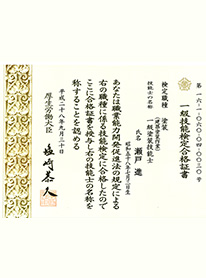 第一六-一-〇六〇-〇四-〇〇三〇号
一級技能検定合格証書
検定職種 塗装
(建築塗装作業)
技能士の名称 一級塗装技能士
氏名 瀬戸 進
あなたは職業能力開発促進法の規定による
右の職種に係る技能検定に合格したので
ここに合格証書を授与し右の技能士の名称を
称することを認める
平成二十八年九月三十日
厚生労働大臣
塩崎恭久